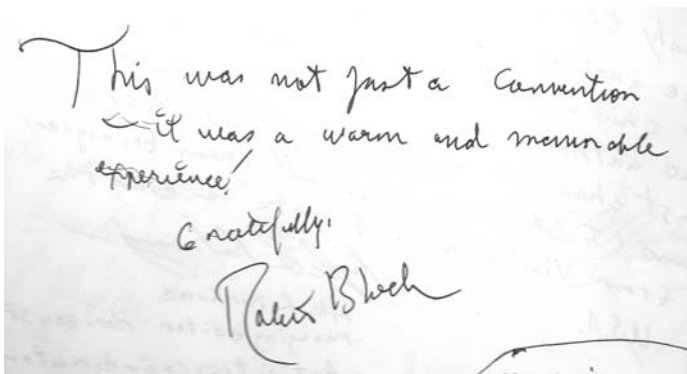 This was not just a Convention
— it was a warm and memorable
experience!
Gratefully,
Robert Bloch